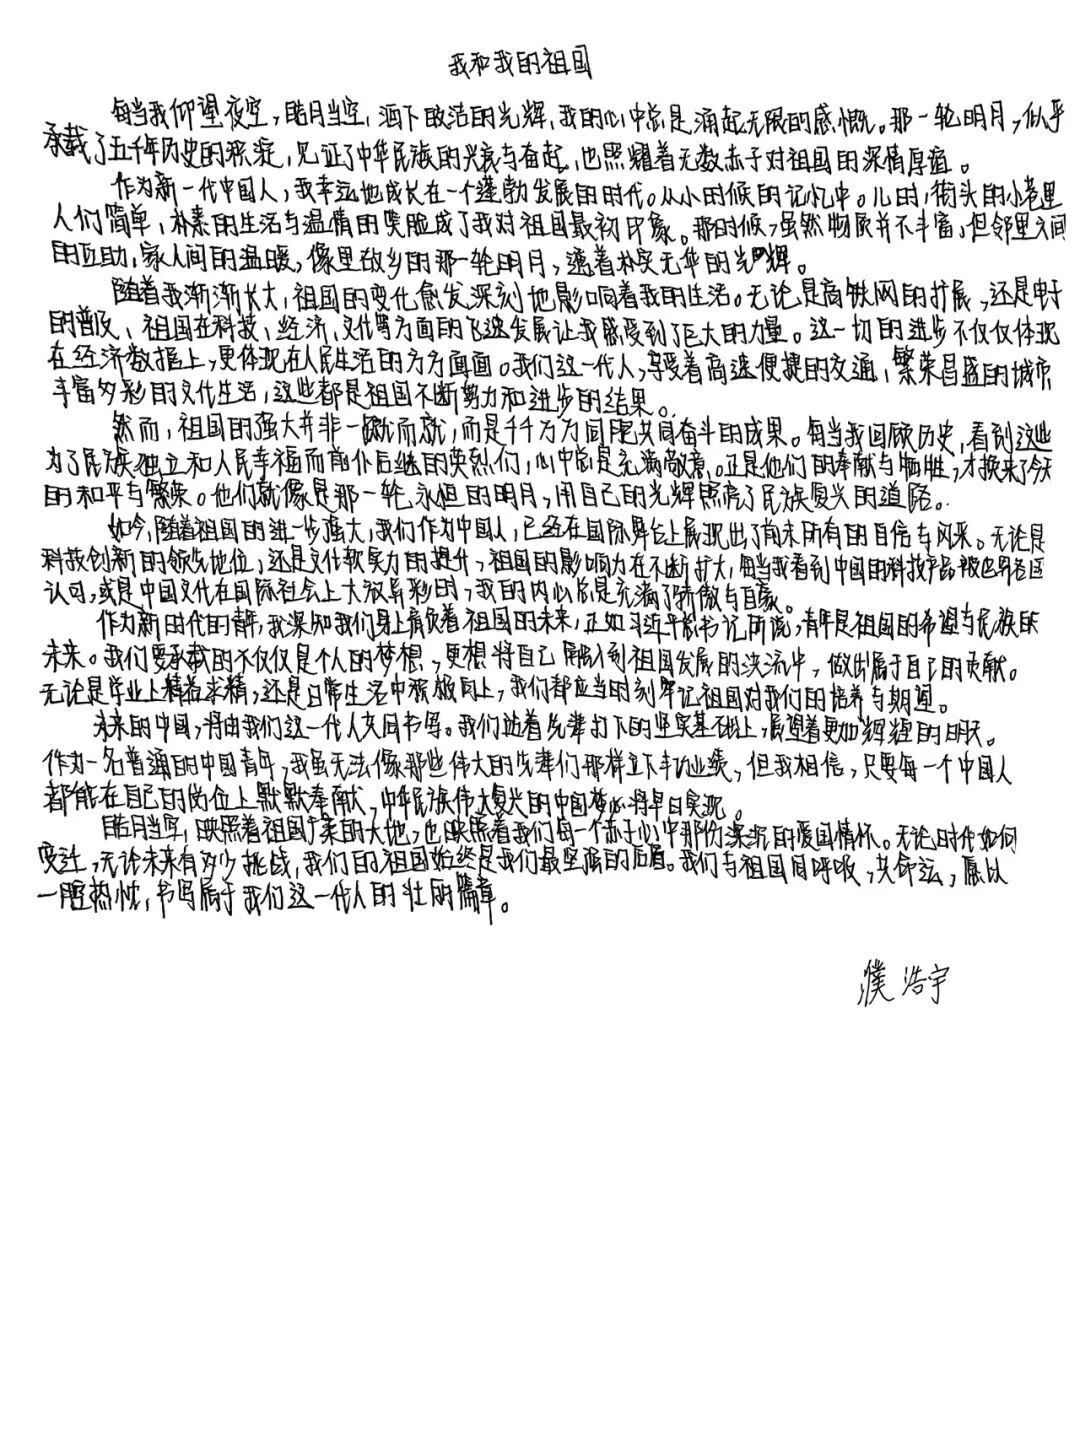 我和我的祖国
每当我仰望夜空，皓月当空，洒下皎洁的光辉，我的心中总是涌起无限的感慨。那一轮明月，似乎
承载了五千年历史的积淀，见证了中华民族的兴衰与奋起，也照耀着无数赤子对祖国的深情厚谊。
作为新一代中国人，我幸运地成长在一个蓬勃发展的时代。从小时候的记忆中。儿时，街头的小巷里
人们简单，朴素的生活与温情的笑脸成了我对祖国最初印象。那时候，虽然物质并不丰富，但邻里之间
的互助，家人间的温暖，像里故乡的那一轮明月，透着朴实无华的光辉。
随着我渐渐长大，祖国的变化愈发深刻地影响着我的生活。无论是高铁网的扩展，还是电子
的普及，祖国在科技，经济，文化等方面的飞速发展让我感受到了巨大的力量。这一切的进步不仅仅体现
在经济数据上，更体现在人民生活的方方面面。我们这一代人，享受着高速便捷的交通，繁荣昌盛的城市
丰富多彩的文化生活，这些都是祖国不断努力和进步的结果。
然而，祖国的强大并非一蹴而就，而是千千万万同胞共同奋斗的成果。每当我回顾历史，看到这些
为了民族独立和人民幸福而前仆后继的英烈们，心中总是充满敬意。正是他们的奉献与牺牲，才换来了今天
的和平与繁荣。他们就像是那一轮永恒的明月，用自己的光辉照亮了民族复兴的道路。
如今，随着祖国的进一步强大，我们作为中国人，已经在国际舞台上展现出了前未所有的自信与风采。无论是
科技创新的领先地位，还是文化软实力的提升，祖国的影响力在不断扩大，每当我看到中国的科技产品被世界各国
认可，或是中国文化在国际社会上大放异彩时，我的内心总是充满了骄傲与自豪。
作为新时代的青年，我深知我们身上肩负着祖国的未来，正如习近平总书记所说，青年是祖国的希望与民族的
未来。我们要承载的不仅仅是个人的梦想，更想将自己融入到祖国发展的洪流中，做出属于自己的贡献。
无论是学业上精益求精，还是日常生活中积极向上，我们都应当时刻牢记祖国对我们的培养与期望。
未来的中国，将由我们这一代人共同书写。我们站着先辈打下的坚实基础上，展望着更加辉煌的明天。
作为一名普通的中国青年，我虽无法像那些伟大的先辈们那样立下丰功业绩，但我相信，只要每一个中国人
都能在自己的岗位上默默奉献，中华民族伟大复兴的中国梦必将早日实现。
皓月当空，映照着祖国广袤的大地，也映照着我们每一个赤子心中那份深沉的爱国情怀。无论时代如何
变迁，无论未来有多少挑战，我们的祖国始终是我们最坚强的后盾。我们与祖国同呼吸，共命运，愿以
一腔热忱，书写属于我们这一代人的壮丽篇章。
濮浩宇